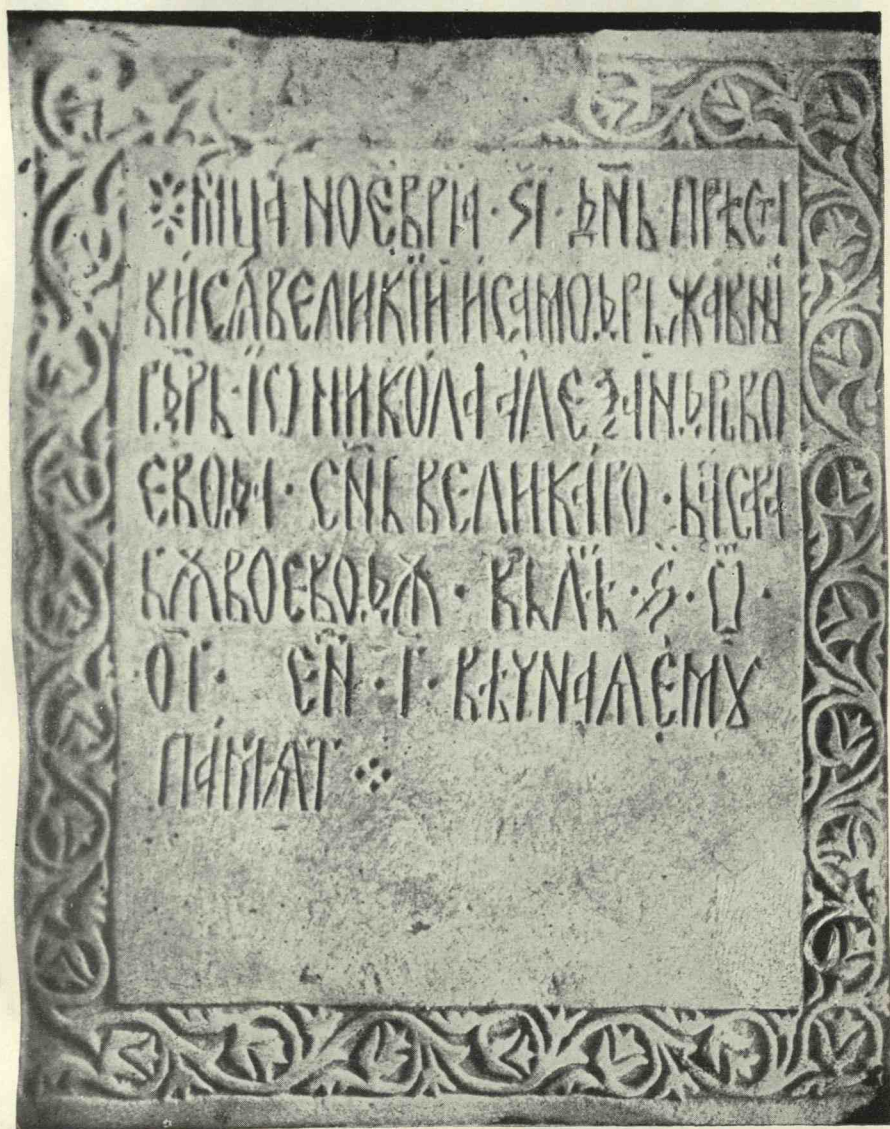 мц҃а ноеврїа · ѕ҃і · дн҃ь прѣсті
ви сѧ великїи и самодрьжавнꙑ
гдⷭ҇рь · їѡ никола алеѯандрь во
евода · сн҃ь великаго · басара
бѫ воеводѫ · въ лѣⷮ · ѕ҃ · ѿ ·
о҃г҃ · ен҃ · г҃ · вѣчнаꙗ емꙋ
памѧт